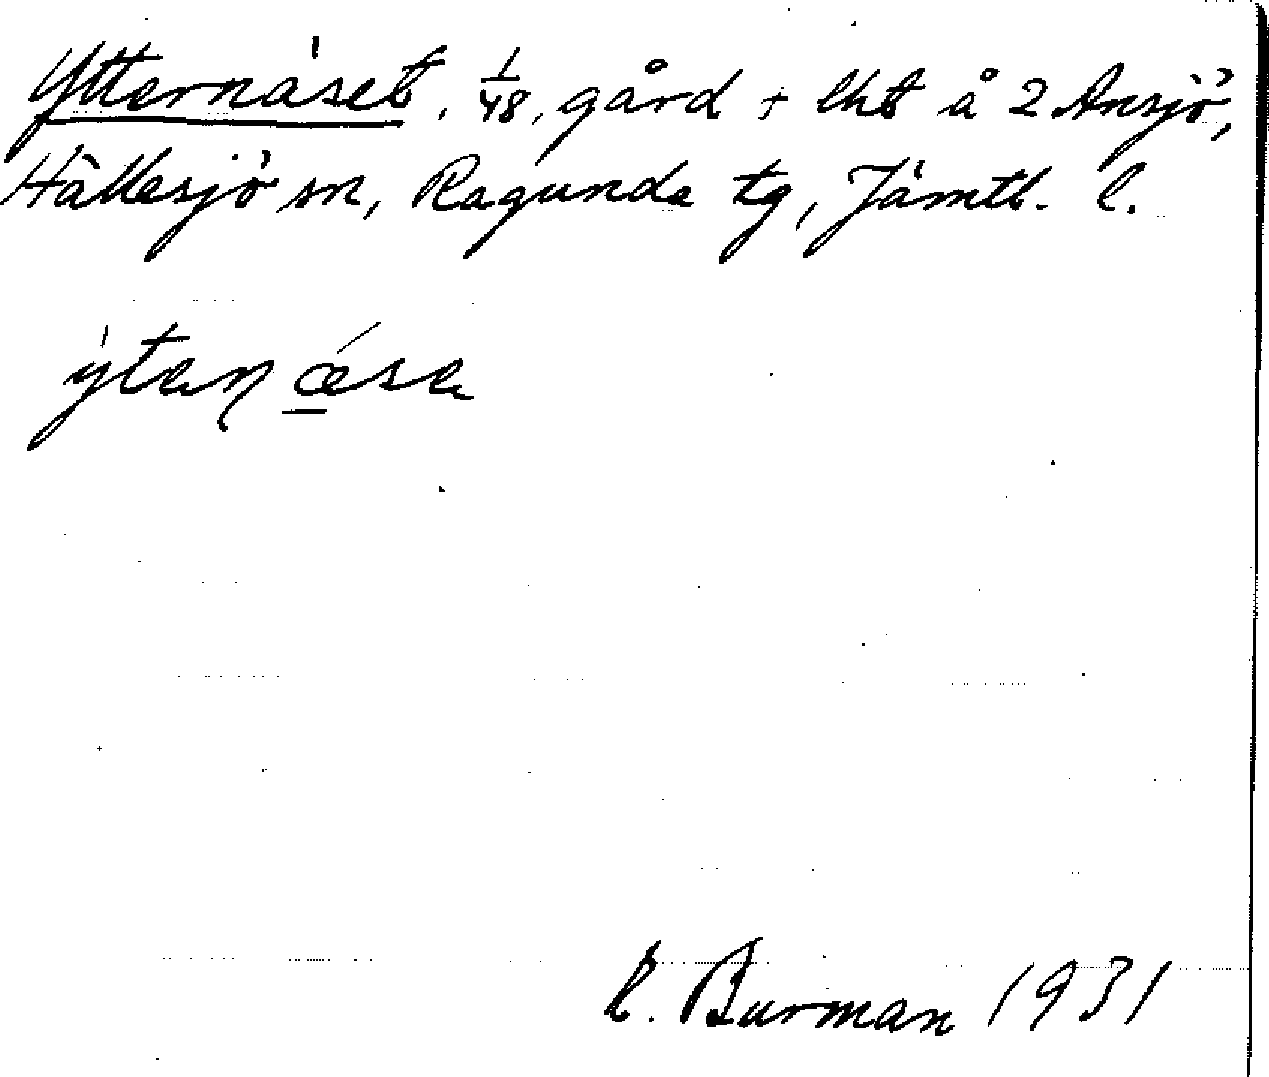 Ytternäset, 1/48, gård + lht å 2 Ansjö,
Hällesjö sn, Ragunda tg, Jämtl. l.
ýtaɳ ǽ̲sa
Burman 1931